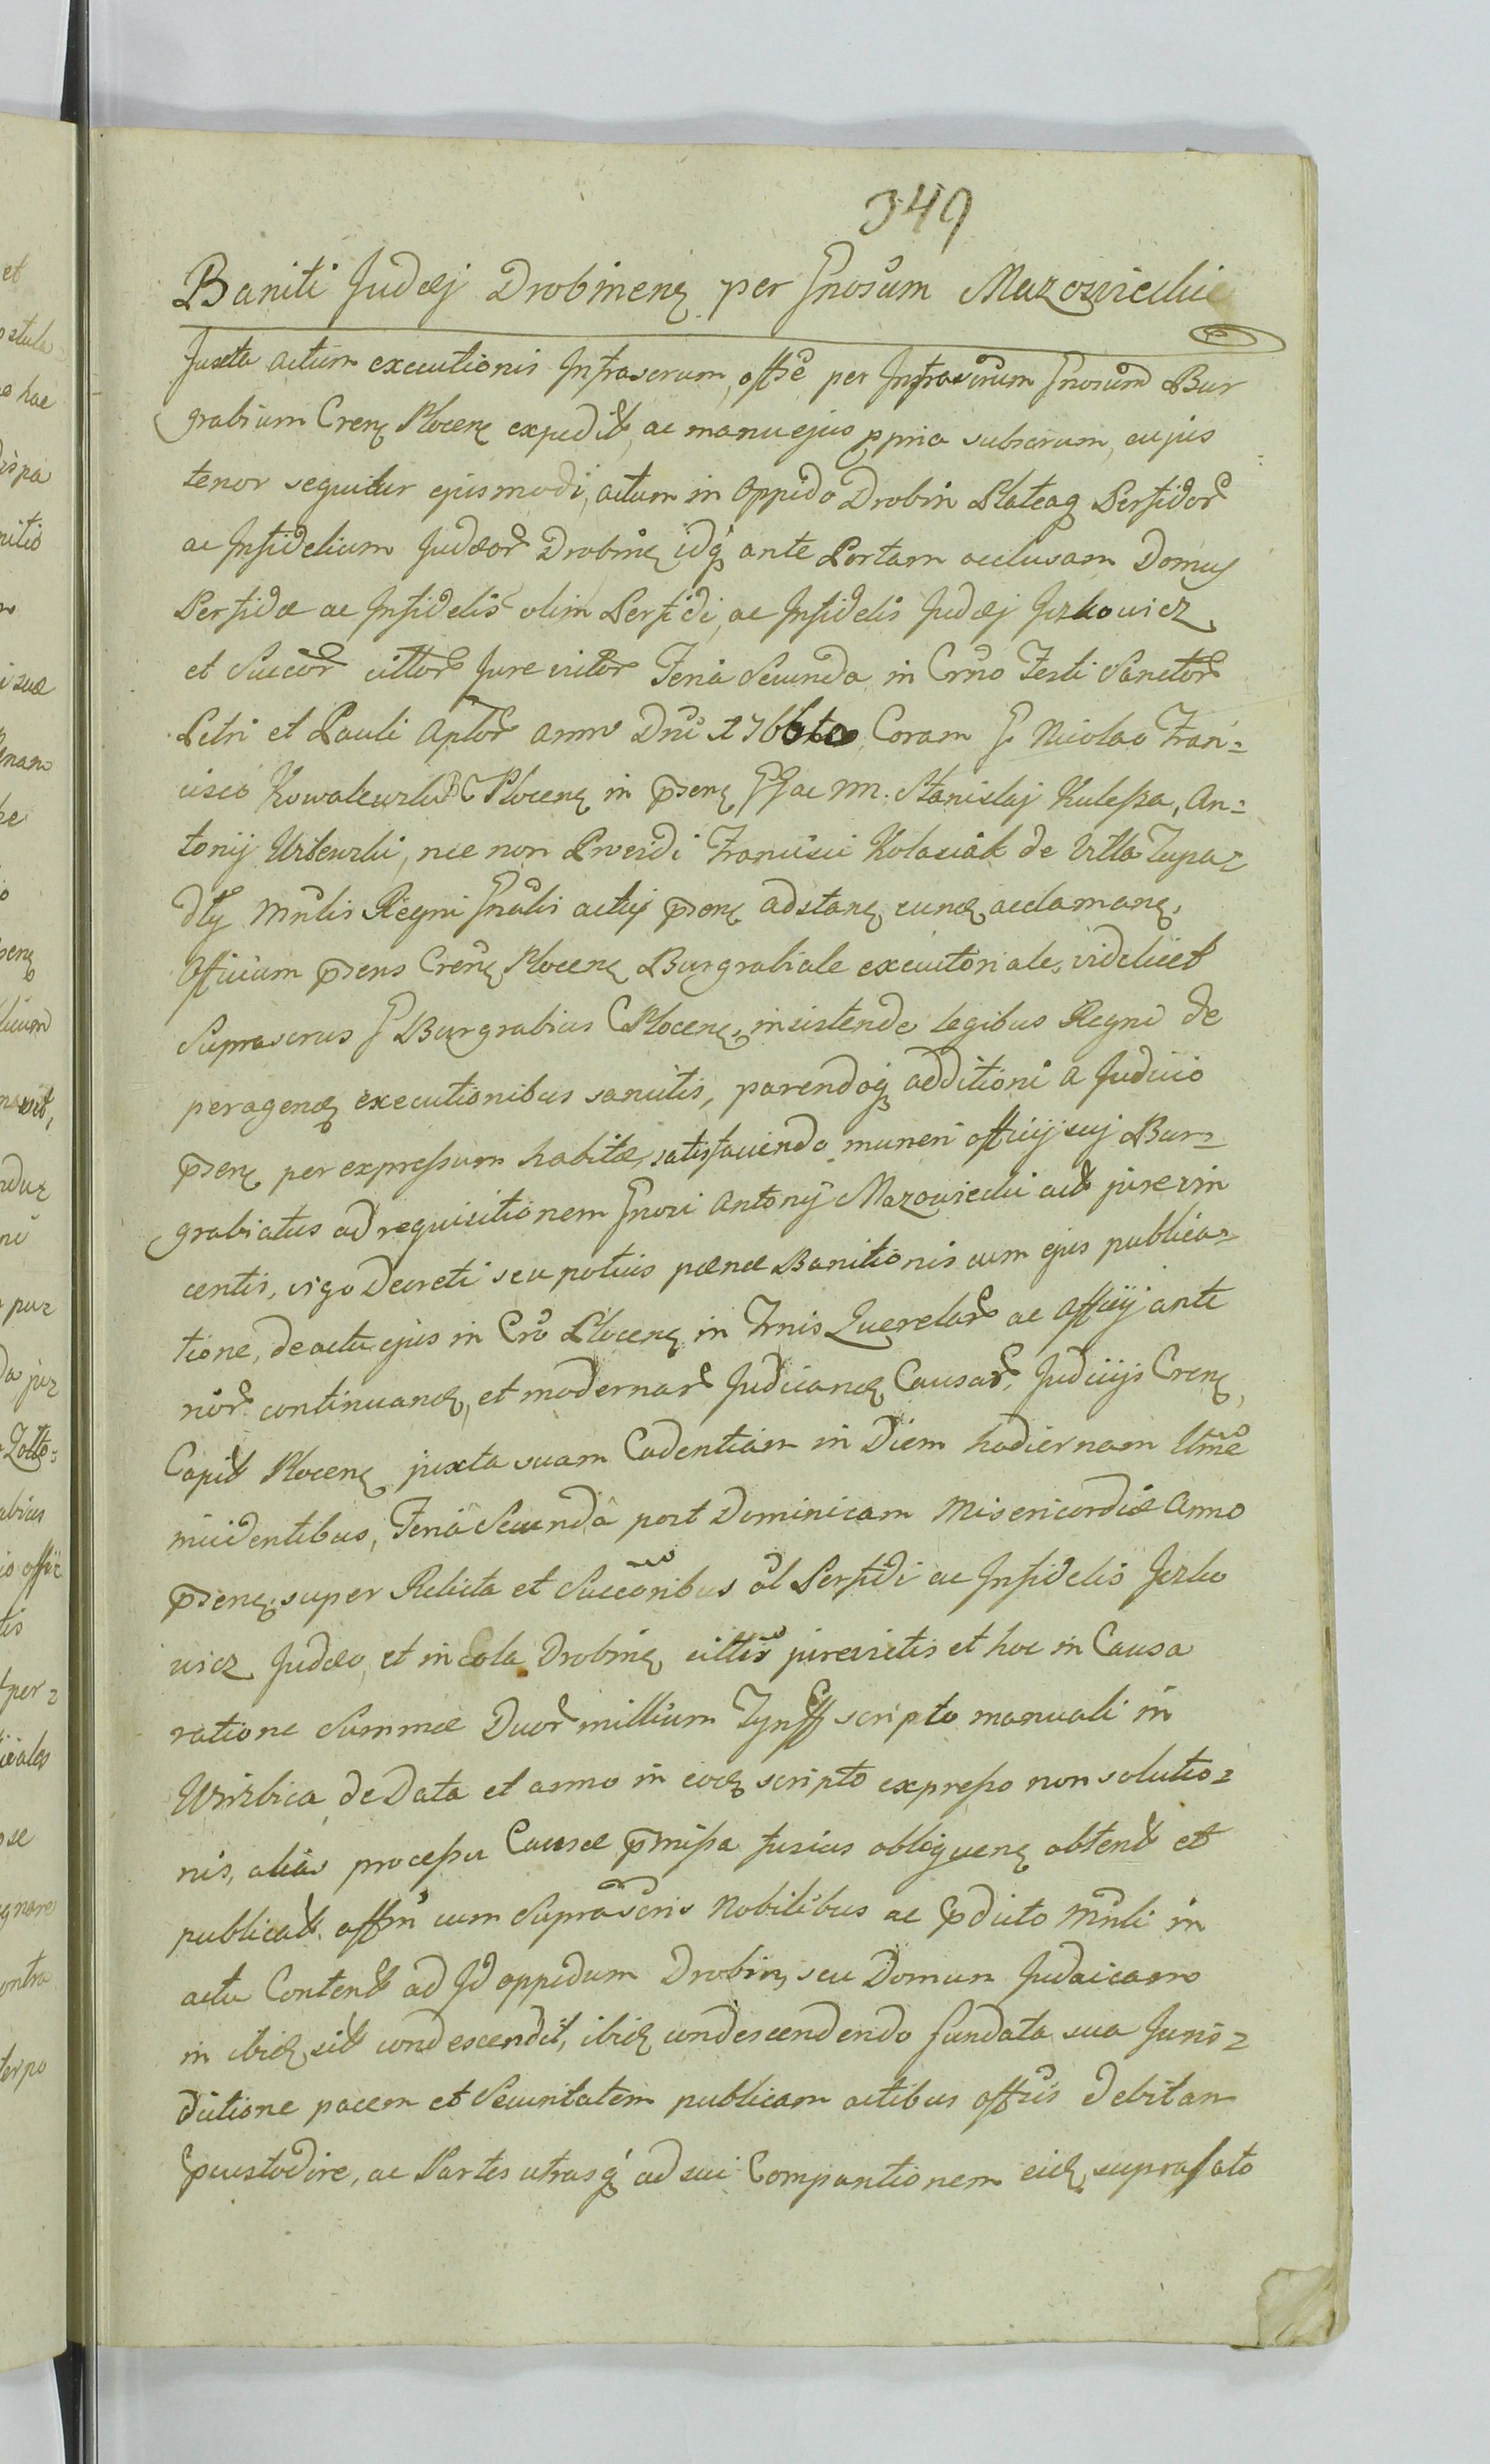 349
Baniti Judæj Drobinenę per Gnosum Mazowiecki
Juxta actum executionis Infrascrum, offse per Infrascrum Gnosum Bur
grabium Crenę Plocenę expedit, ac manu ejus ppria subscrum, cujus
tenor sequitur ejusmodi, actum in Oppido Drobin Plateaq Perfidor
ac Infidelium Judæor Drobinę idq ante Portam occlusam Domus
Perfidæ ac Infidelis olim Perfidi, ac Infidelis Judæj Jczkowicz
et Succor cittor Jure victor Feria Secunda in Crno Festi Sanctor
Petri et Pauli Aplor Anno Dni 1766to Coram G Nicolao Fran=
cisco Kowalewski B C Plocenę in psenę GG ac NN. Stanislaj Kulesza, An=
tonij Urbewski, nec non Providi Francisci Kolasiak de Villa
Mnlis Regni Gnalis actuj psenę adstanę, eunq acclamanę,
Officium psens Crenę Plocenę Burgrabiale executoriale, videlicet
Suprascrus G Burgrabius C Plocenę, insistendo Legibus Regni de
peragenq executionibus sancitis, parendoq additioni a Judicio
psenę per expressum habitæ, satisfaciendo muneri officij suj Bur=
grabiatus ad requisitionem Gnosi Antonij Mazowiecki act jurevin
centis, vigo Decreti seu potius pænæ Banitionis cum ejus publica=
tione, de actu ejus in Cro Plocenę in Trnis Querelar ac Officij ante
rior continuanq, et modernar Judicanq Causar, Judicijs Crenę,
Capit Plocenę juxta suam Cadentiam in Diem hodiernam
incidentibus, Feriâ Secundâ post Dominicam Misericordiæ Anno
psenę, super Relicta et Succoribus ol Perfidi ac Infidelis Jczko
wicz Judæo, et incola Drobinę cittis jurevictis et hoc in Causa
ratione Summæ Duor millium Tynff scripto manuali in
Wrzbica de Data et anno in eoq scripto expresso non solutio=
nis, alias processu Causæ pmissa fusius obloquenę obtent et
publicat. offm cum Suprascris Nobilibus ac pdicto Mnli in
actu Content ad Id oppidum Drobin, seu Domum Judaicam
in ibiq sit condescendit, ibiq condescendendo fundata sua Juris=
dictione pacem et Securitatem publicam actibus offsis debitam
pcustodire, ac Partes utrasq ad sui Compantionem eiq suprafato